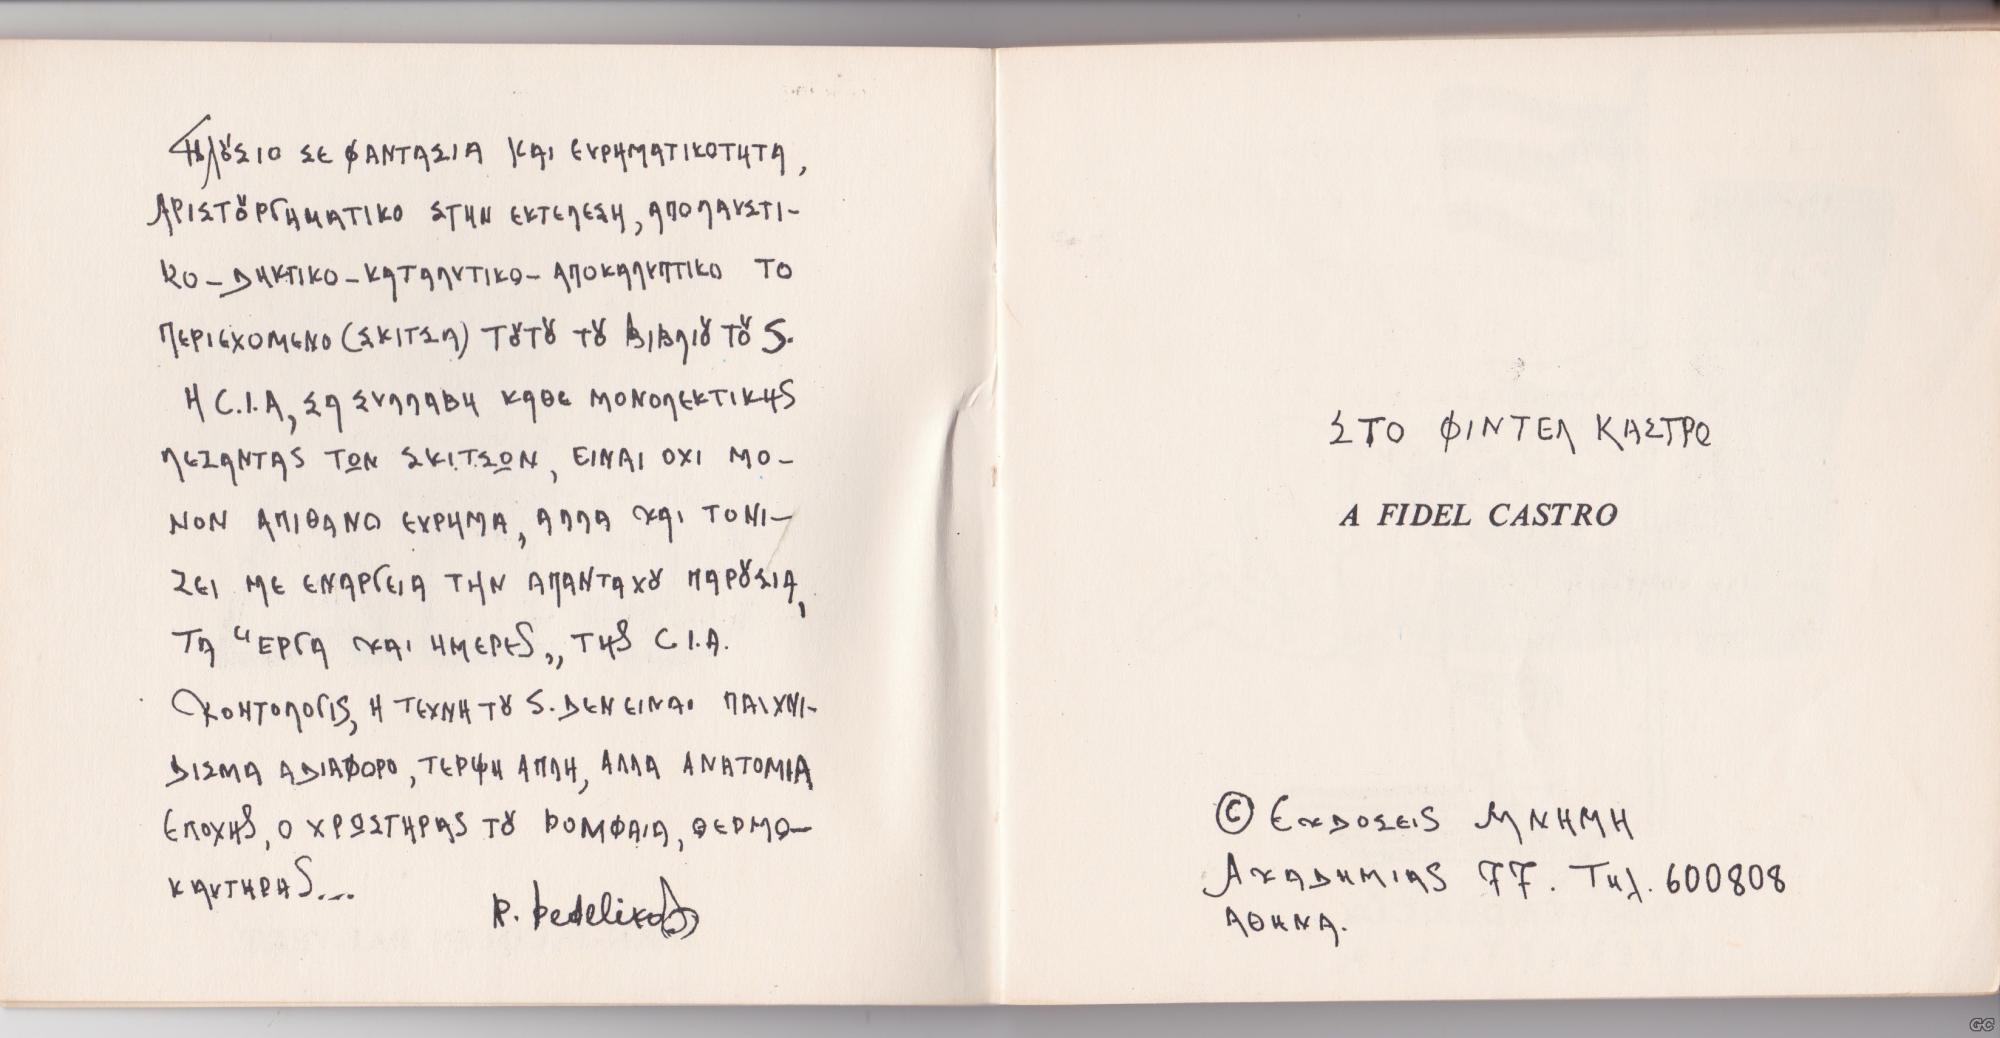 ΠΛΟΥΣΙΟ ΣΕ ΦΑΝΤΑΣΙΑ ΚΑΙ ΕΥΡΗΜΑΤΙΚΟΤΗΤΑ,
ΑΡΙΣΤΟΥΡΓΗΜΑΤΙΚΟ ΣΤΗΝ ΕΚΤΕΛΕΣΗ, ΑΠΟΛΑΥΣΤΙ-
ΚΟ-ΔΗΚΤΙΚΟ-ΚΑΤΑΛΥΤΙΚΟ-ΑΠΟΚΑΛΥΠΤΙΚΟ ΤΟ
ΠΕΡΙΕΧΟΜΕΝΟ (ΣΚΙΤΣΑ) ΤΟΥΤΟΥ ΤΟΥ ΒΙΒΛΙΟΥ ΤΟΥ S.
Η C.I.A, ΣΑ ΣΥΛΛΑΒΗ ΚΑΘΕ ΜΟΝΟΛΕΚΤΙΚΗΣ
ΛΕΖΑΝΤΑΣ ΤΩΝ ΣΚΙΤΣΩΝ, ΕΙΝΑΙ ΟΧΙ ΜΟ-
ΝΟΝ ΑΠΙΘΑΝΟ ΕΥΡΗΜΑ, ΑΛΛΑ ΚΑΙ ΤΟΝΙ-
ΖΕΙ ΜΕ ΕΝΑΡΓΕΙΑ ΤΗΝ ΑΠΑΝΤΑΧΟΥ ΠΑΡΟΥΣΙΑ,
ΤΑ "ΕΡΓΑ ΚΑΙ ΗΜΕΡΕΣ,, ΤΗΣ C.I.A.
ΚΟΝΤΟΛΟΓΙΣ, Η ΤΕΧΝΗ ΤΟΥ S. ΔΕΝ ΕΙΝΑΙ ΠΑΙΧΝΙ-
ΔΙΣΜΑ ΑΔΙΑΦΟΡΟ, ΤΕΡΨΗ ΑΠΛΗ, ΑΛΛΑ ΑΝΑΤΟΜΙΑ
ΕΠΟΧΗΣ, Ο ΧΡΩΣΤΗΡΑΣ ΤΟΥ ΡΟΜΦΑΙΑ, ΘΕΡΜΟ-
ΚΑΥΤΗΡΗΣ...
ΣΤΟ ΦΙΝΤΕΛ ΚΑΣΤΡΟ
A FIDEL CASTRO
© ΕΚΔΟΣΕΙΣ ΜΝΗΜΗ
ΑΚΑΔΗΜΙΑΣ 77. Τηλ. 600808
ΑΘΗΝΑ.
GC